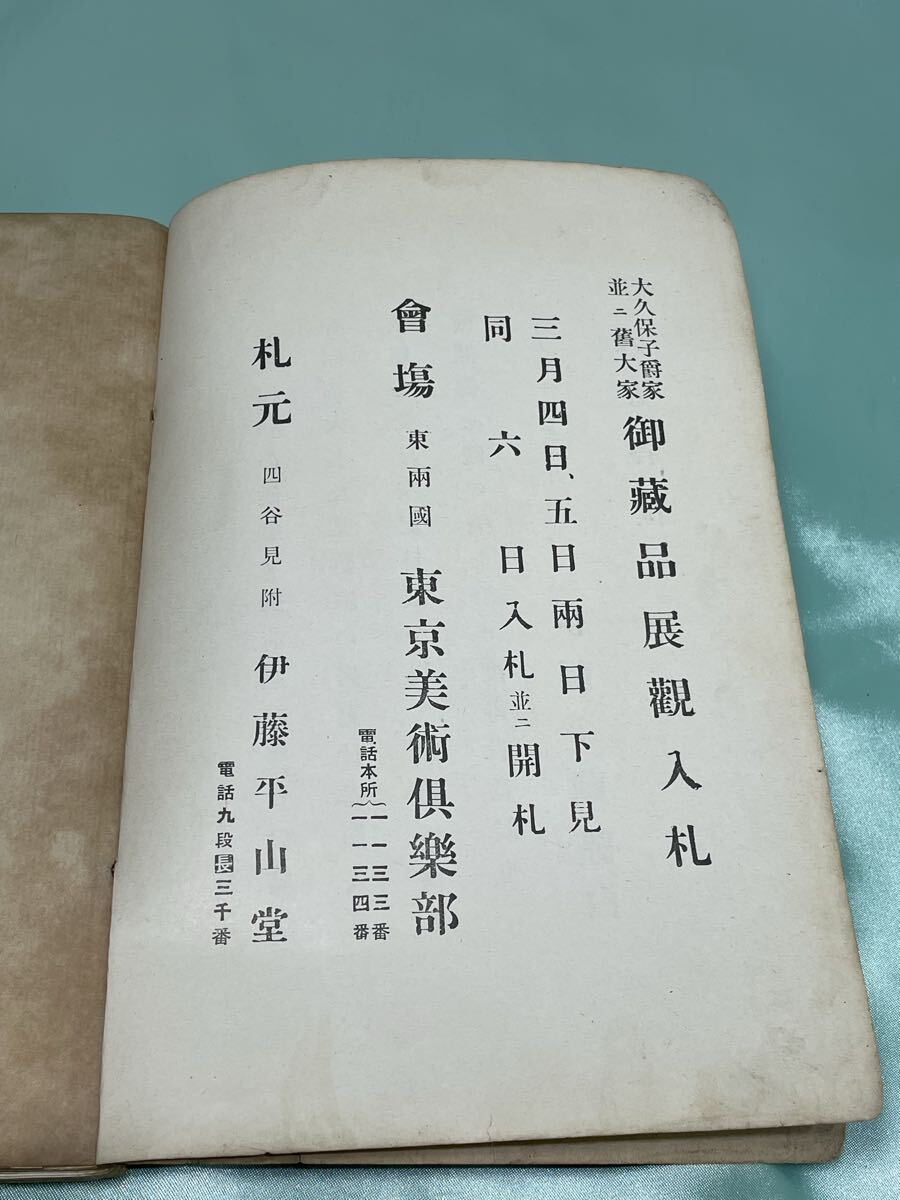 大久保子爵家
並ニ舊大家
御藏品展觀入札
三月四日、五日兩日下見
同六日入札並ニ開札
會塲 東兩國 東京美術俱樂部
電話本所 一一三三番
一一三四番
札元 四谷見附 伊藤平山堂
電話九段長三千番